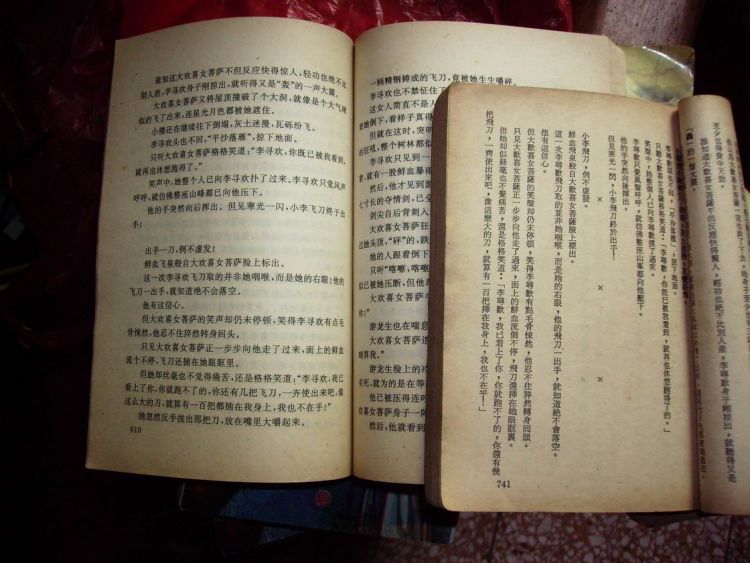 谁知这大欢喜女菩萨不但反应快得惊人，轻功也绝不比
别人差，李寻欢身子刚掠出，就听得又是“轰”的一声大震。
大欢喜女菩萨又将屋顶撞破了个大洞，就像是个大气球
似的飞了出来，连星光月色都被她遮住。
小楼还在继续往下倒塌，灰土迷漫，瓦砾纷飞。
李寻欢头也不回，“平沙落雁”，掠下地面。
只听大欢喜女菩萨格格笑道：“李寻欢，你既已被我看到，
就再也休想跑得了。”
笑声中，她整个人已向李寻欢扑了过来。李寻欢只觉风声
呼呼，就仿佛整座山峰都已向他压下。
他的手突然向后挥出。但见寒光一闪，小李飞刀终于出
手！
出手一刀，例不虚发！
鲜血飞泉般自大欢喜女菩萨脸上标出。
这一次李寻欢飞刀取的并非她咽喉，而是她的右眼！他的
飞刀一出手，就知道绝不会落空。
他有这信心。
但大欢喜女菩萨的笑声却仍未停顿，笑得李寻欢有点毛
骨悚然，他忍不住猝然转身回头。
只见大欢喜女菩萨正一步步向他走了过来，面上的鲜血
流个不停，飞刀还插在她眼眶里。
但她却丝毫也不觉得痛苦，还是格格笑道：“李寻欢，我已
看上了你，你就跑不了的，你还有几把飞刀，一齐使出来吧，像
这么大的刀，就算有一百把都插在我身上，我也不在乎！”
她忽然反手拔出那把刀，放在嘴里大嚼起来。
610
一柄精钢铸成的飞刀，竟被她生生嚼碎。
李寻欢也不禁怔住了
这女人简直不是人
她倒下，看样子真得
但就在这时，突听
的，整个树林都似
李寻欢只见到一
前，就有一股鲜血暴
然后，他才见到游
七寸长的夺情剑，已全
剑尖自后背刺入
大欢喜女菩萨狂
过她头顶，“砰”的，跌
她的人跟着倒下
只听“喀嚓，喀嚓
似已被压断，但他却
大欢喜女菩萨
你！”
游龙生也在喘息
大欢喜女菩萨道
暗算我。”
游龙生脸上的冷
有死，为的就是在等
他已被压得连呼
欢喜女菩萨身子一阵
然后，他就看到
「轟」的一聲大震。
誰知道大歡喜女菩薩不但反應快得驚人，輕功也絕不比別人差，李尋歡身子剛掠出，就聽得又是
李尋歡頭也不回，「平沙落雁」，掠下地面。
只聽大歡喜女菩薩格格笑道：「李尋歡，你既已被我看到，就再也休想跑得了。」
笑聲中，她整個人已向李尋歡撲了過來。
李尋歡只覺風聲呼呼，就彷彿整座山峰都已向他壓下。
他的手突然向後揮出。
但見寒光一閃，小李飛刀終於出手！
× × ×
小李飛刀，例不虛發。
鮮血飛泉般自大歡喜女菩薩臉上標出。
這一次李尋歡飛刀取的並非她咽喉，而是她的右眼，他的飛刀一出手，就知道絕不會落空。
他有這信心。
但大歡喜女菩薩的笑聲却仍未停頓，笑得李尋歡有點毛骨悚然，他忍不住猝然轉身回頭。
只見大歡喜女菩薩正一步步向他走了過來，面上的鮮血流個不停，飛刀還插在她眼眶裏。
但她却似絲毫也不覺痛苦，還是格格笑道：「李尋歡，我已看上了你，你就跑不了的，你還有幾
把飛刀，一齊使出來吧，像這麼大的刀，就算有一百把挿在我身上，我也不在乎！」
741